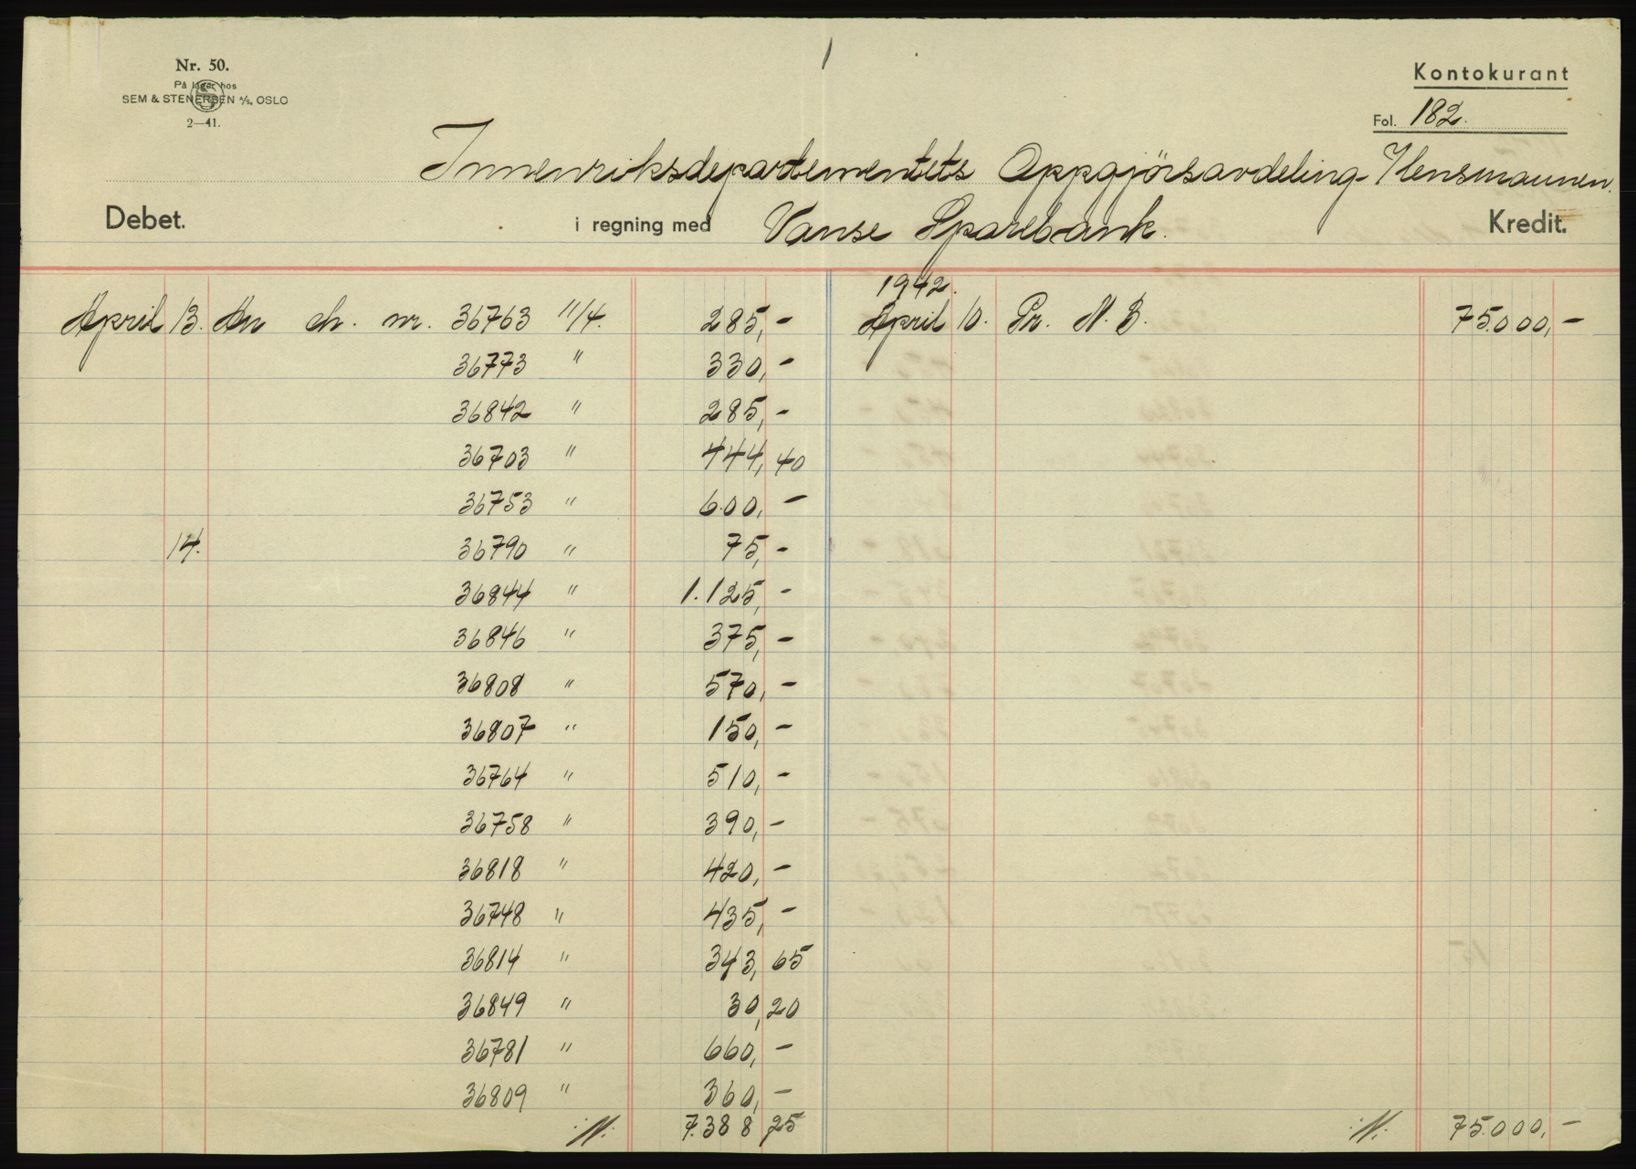 1
Nr. 50.
På lager hos
SEM & STENERSEN A/S, OSLO
2—41.
Kontokurant
Fol. 182.
Innenriksdepartementets Oppgjörsavdeling
Debet. i regning med Vanse Sparebank. Kredit.
1942.
April 13. An ch. nr. 36763 11/4. 285,- April 10. Pr. N. B. 75.000,-
36773 " 330,-
36842 " 285,-
36703 " 444,40
36753 " 600,-
14. 36790 " 75,-
36844 " 1.125,-
36846 " 375,-
36808 " 570,-
36807 " 150,-
36764 " 510,-
36758 " 390,-
36818 " 420,-
36748 " 435,-
36814 " 343,65
36849 " 30,20
36781 " 660,-
36809 " 360,-
7.388 25 75.000,-